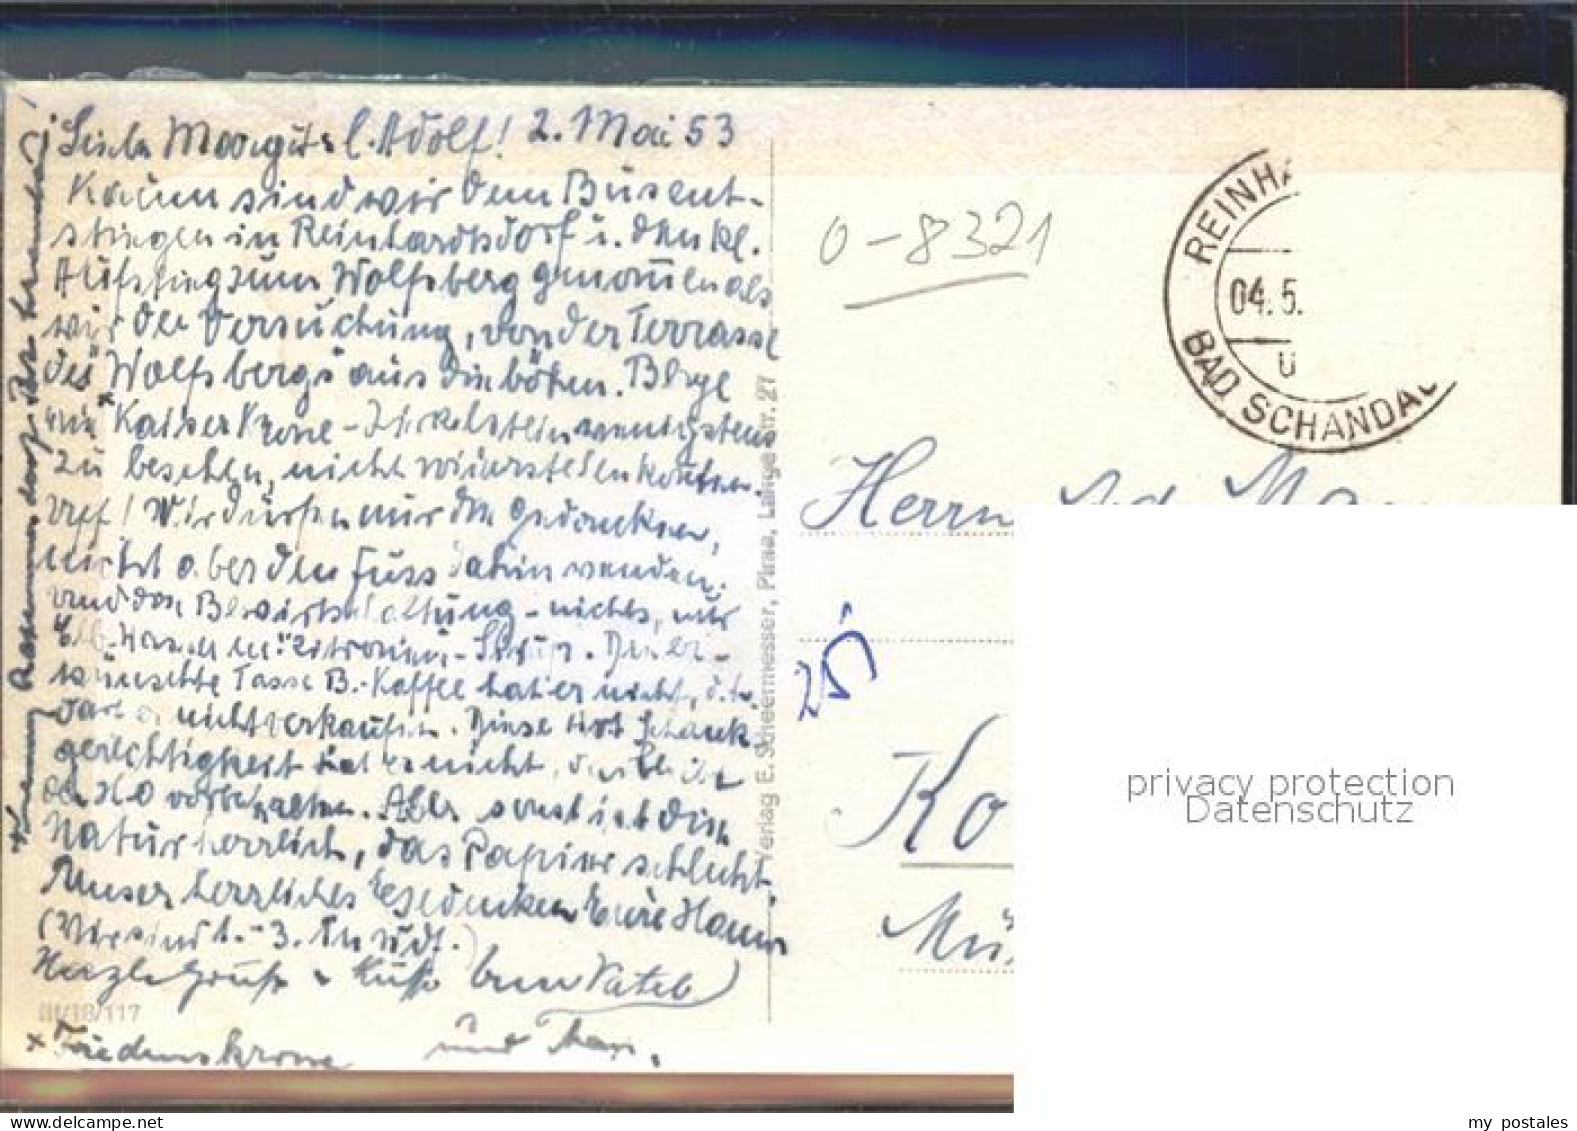 Liebe Margit u. l. Adolf! 2. Mai 53
Kaum sind wir dem Bus ent-
stiegen in Reinhardtsdorf u. den kl.
Aufstieg zum Wolfsberg genommen als
wir der Versuchung, von der Terrasse
des "Wolfsbergs" aus die böhm. Berge
Kaiserkrone - Zirkelstein wenigstens
zu besehen, nicht widerstehen konnten.
Uff! Wir dürfen nur den Gedanken,
nicht aber den Fuss dahin wenden.
und die Bewirtschaftung - nichts, nur
Zitronen-Sirup. Die er-
wünschte Tasse B.-Kaffee hat er nicht, d.h.
darf er nicht verkaufen. Diese Art Schank-
gerechtigkeit hat er nicht, das bleibt
der HO vorbehalten. Aber sonst ist die
Natur herrlich, das Papier schlecht.
Unser herzliches Gedenken Eure
(Wir sind 1.-3. in Rdf.)
Herzl. Gruß u. Kuß Euer Vater
und
x Friedenskrone
III/18/117
Verlag E. Scheermesser, Pirna, Lange Str. 27
0-8321
REINHA
BAD SCHANDAU
04.5.
u
Herrn
Ko
Mü
privacy protection
Datenschutz
my postales
www.delcampe.net